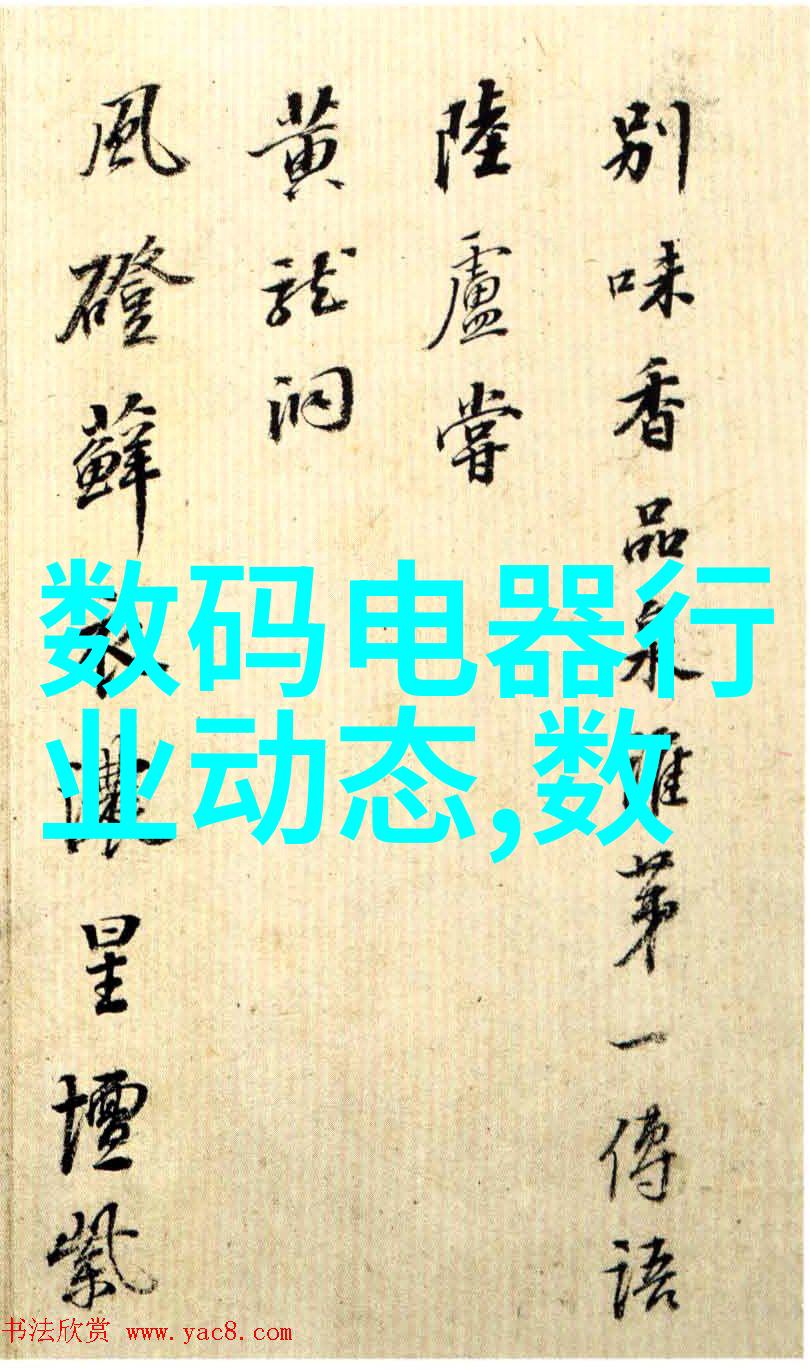 別味香品泉誰苐一傳語
陸盧嘗
黃龍洞
風磴蘚衣濃星壇紫
数码电器行
业动态,数
书法欣赏 www.yac8.com